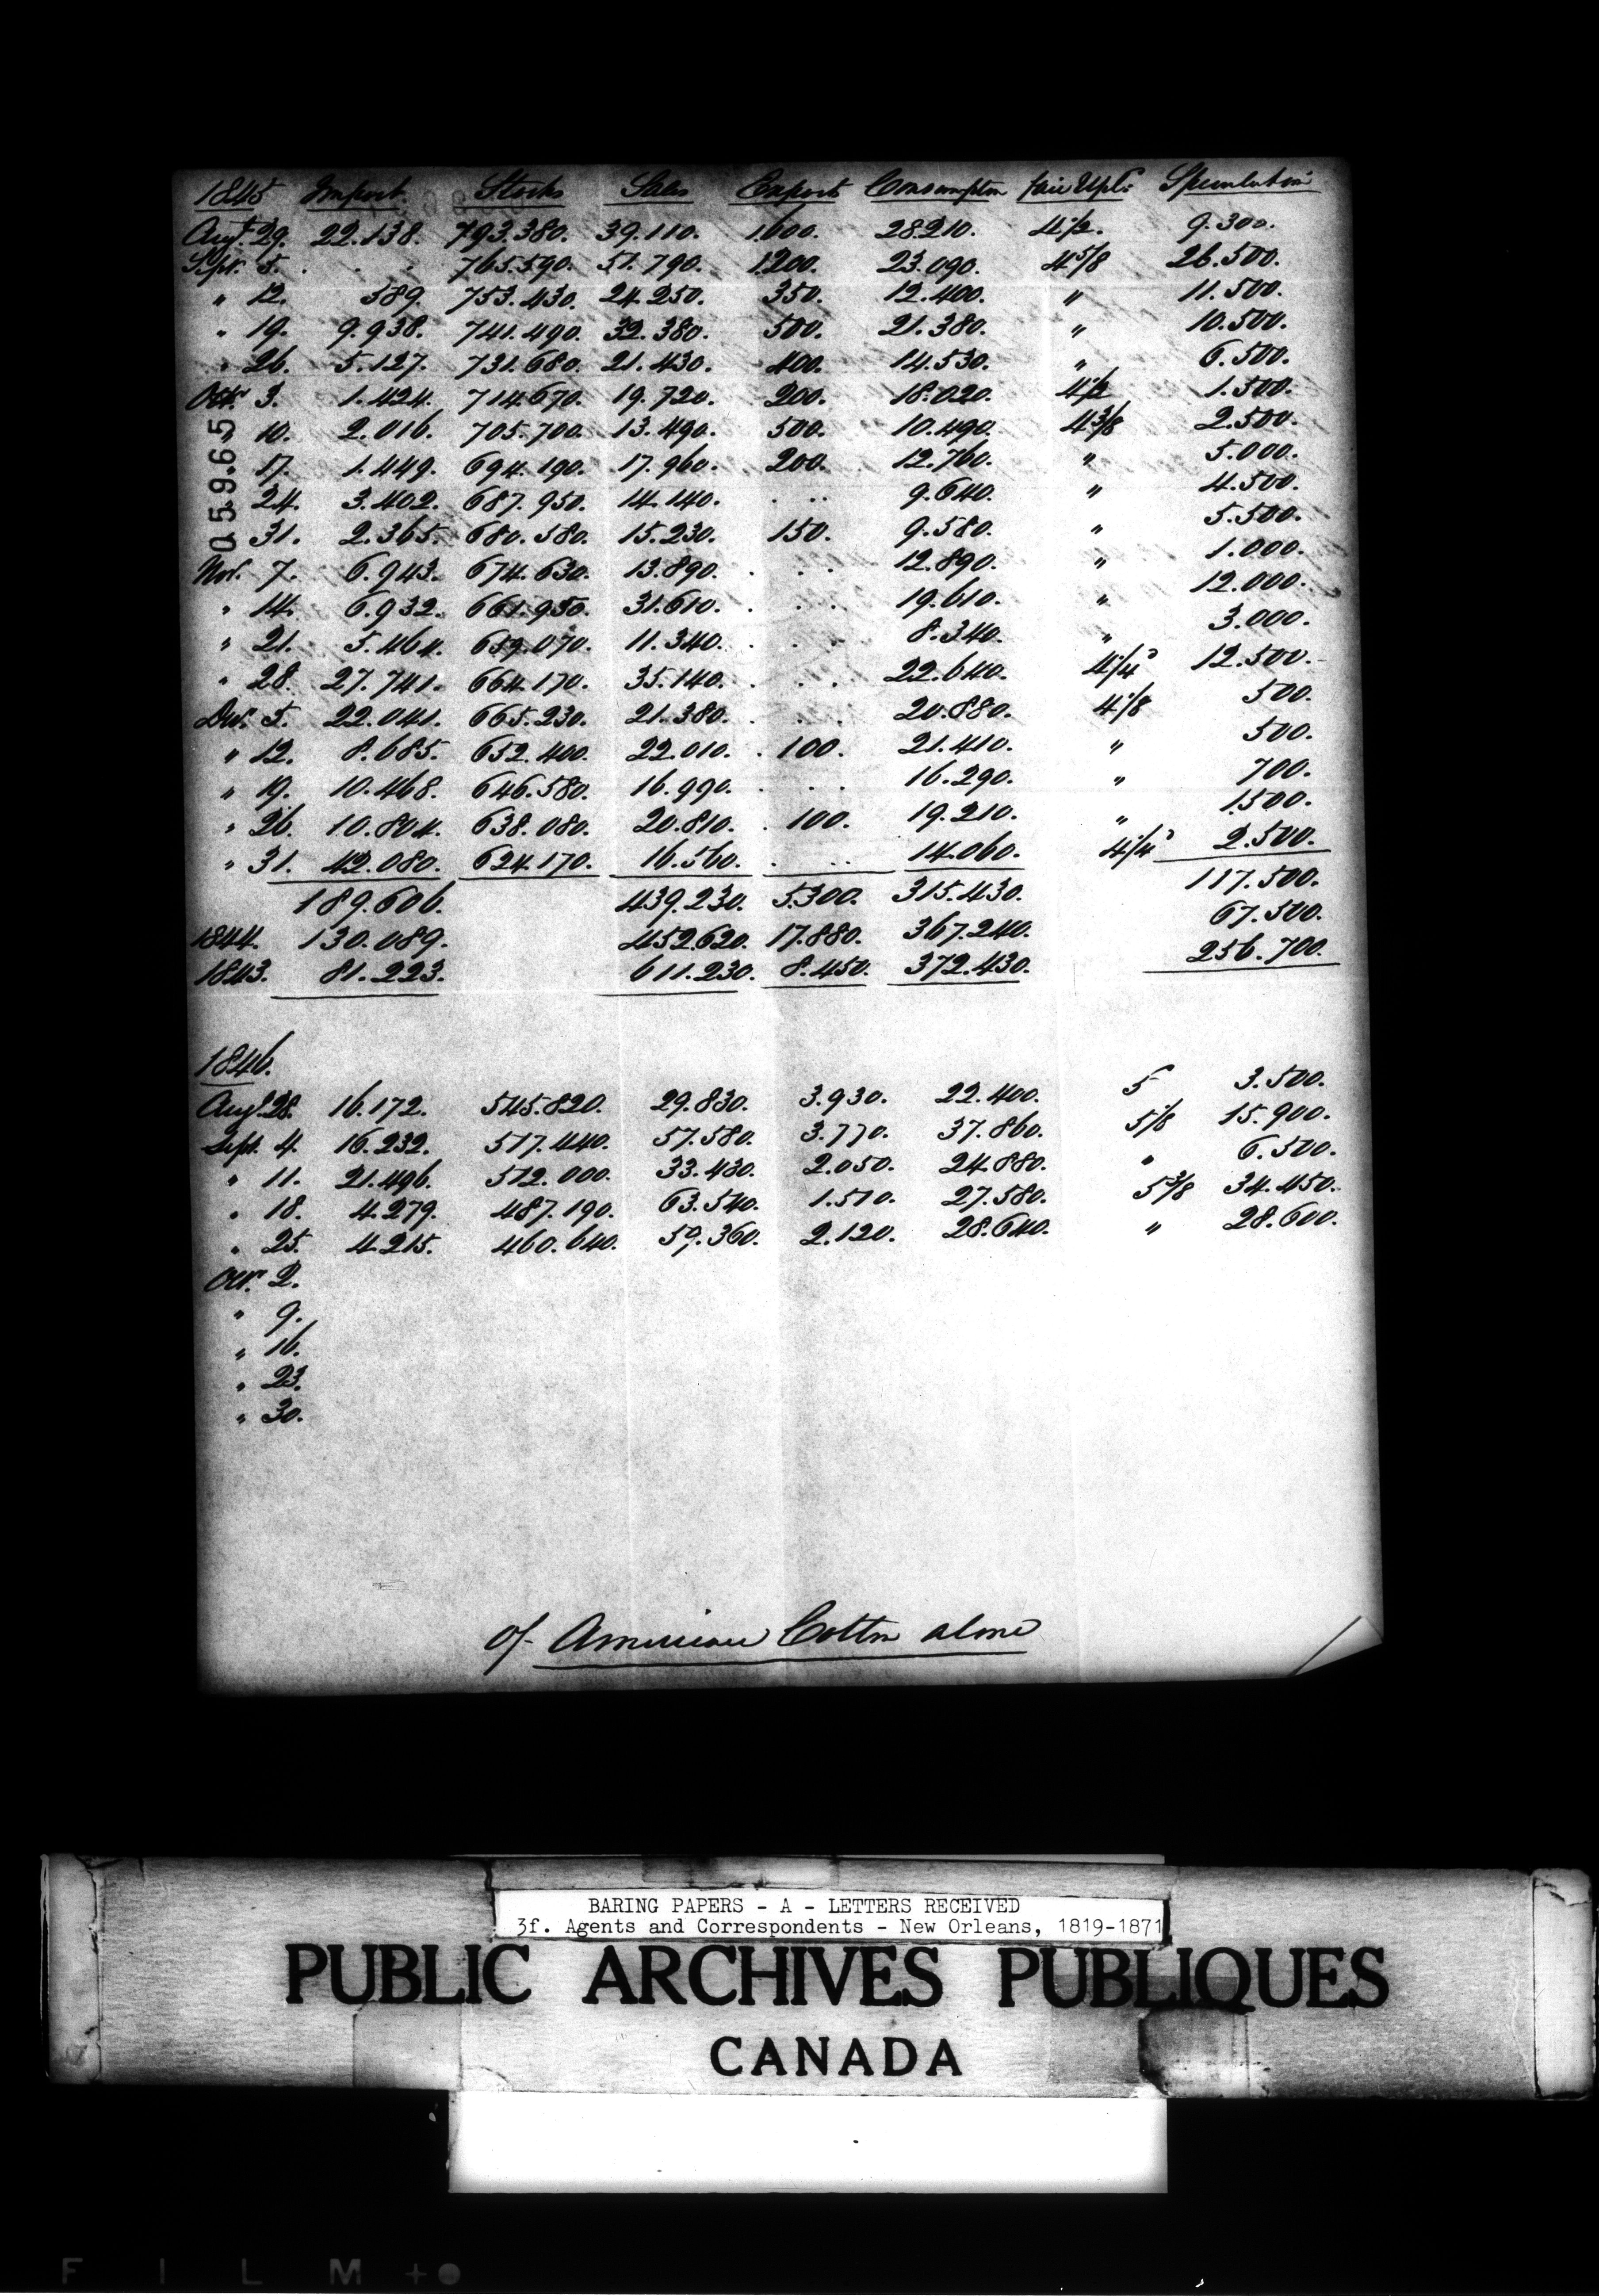 1845 Import. Stocks Sales Export Consumption fair Upl. Speculation
Augt. 29. 22.138. 793.380. 39.110. 1.600. 28.210. 4 1/2. 9.300.
Sept. 5. . . . 765.590. 51.790. 1.200. 23.090. 4 5/8 26.500.
" 12. 389. 753.430. 24.250. 350. 12.400. " 11.500.
" 19. 9.938. 741.490. 32.380. 500. 21.380. " 10.500.
" 26. 5.127. 731.680. 21.430. 400. 14.530. " 6.500.
Octr. 3. 1.424. 714.670. 19.720. 200. 18.020. 4 1/2 1.500.
" 10. 2.016. 705.700. 13.490. 500. 10.490. 4 3/8 2.500.
17. 1.449. 694.190. 17.960. 200. 12.760. " 5.000.
24. 3.402. 687.950. 14.140. . . . 9.640. " 4.500.
31. 2.365. 680.580. 15.230. 150. 9.580. " 5.500.
Nov. 7. 6.943. 674.630. 13.890. . . . 12.890. " 1.000.
" 14. 6.932. 661.950. 31.610. . . . 19.610. " 12.000.
" 21. 5.464. 659.070. 11.340. . . . 8.340. " 3.000.
" 28. 27.741. 664.170. 35.140. . . . 22.640. 4 1/4 12.500.
Decr. 5. 22.041. 665.230. 21.380. . . . 20.880. 4 1/8 500.
" 12. 8.685. 652.400. 22.010. . 100. 21.410. " 500.
" 19. 10.468. 646.580. 16.990. . . . 16.290. " 700.
" 26. 10.804. 638.080. 20.810. . 100. 19.210. " 1.500.
" 31. 42.080. 624.170. 16.560. . . . 14.060. 4 1/4 2.500.
189.606. 439.230. 5.300. 315.430. 117.500.
1844. 130.089. 452.620. 17.880. 367.240. 67.500.
1843. 81.223. 611.230. 8.450. 372.430. 256.700.
1846.
Augt. 28. 16.172. 545.820. 29.830. 3.930. 22.400. 5 3.500.
Sept. 4. 16.232. 517.440. 57.580. 3.770. 37.860. 5 1/8 15.900.
" 11. 21.496. 512.000. 33.430. 2.050. 24.880. " 6.500.
" 18. 4.279. 487.190. 63.540. 1.510. 27.580. 5 3/8 34.450.
" 25. 4.215. 460.640. 59.360. 2.120. 28.640. " 28.600.
Octr. 2.
" 9.
" 16.
" 23.
" 30.
Of American Cotton alone
059651
BARING PAPERS - A - LETTERS RECEIVED
3f. Agents and Correspondents - New Orleans, 1819-1871
PUBLIC ARCHIVES PUBLIQUES
CANADA
FILM